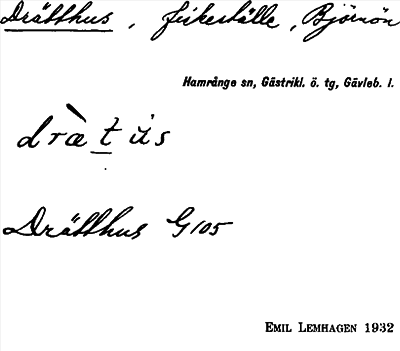 Drätthus, fiskeställe, Björnön
Hamrånge sn, Gästrikl. ö. tg, Gävleb. l.
dræ̀tu̇s
Drätthus G 105
EMIL LEMHAGEN 1932